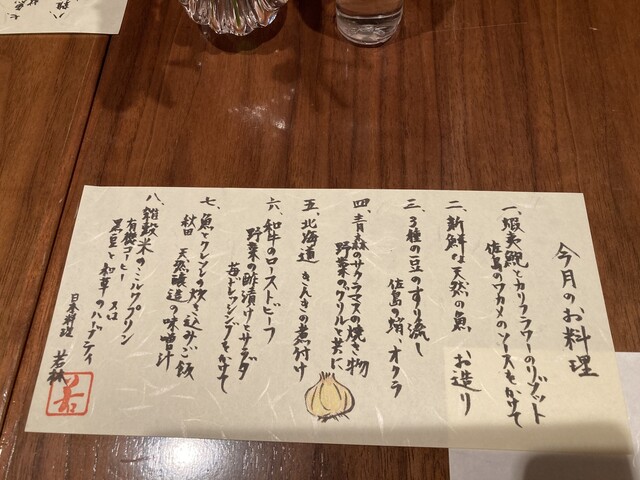 今月のお料理
一、蝦夷鮑とカリフラワーのリゾット
佐島のワカメのソースをかけて
二、新鮮な天然の魚 お造り
三、3種の豆のすり流し
佐島の蛸、オクラ
四、青森のサクラマスの焼き物
野菜のグリルと共に
五、北海道 きんきの煮付け
六、和牛のローストビーフ
野菜の酢漬けとサラダ
苺ドレッシングをかけて
七、魚とクレソンの炊き込みご飯
秋田 天然醸造の味噌汁
八、雑穀米のミルクプリン
有機コーヒー 又は
黒豆と和草のハーブティ
日本料理 若林